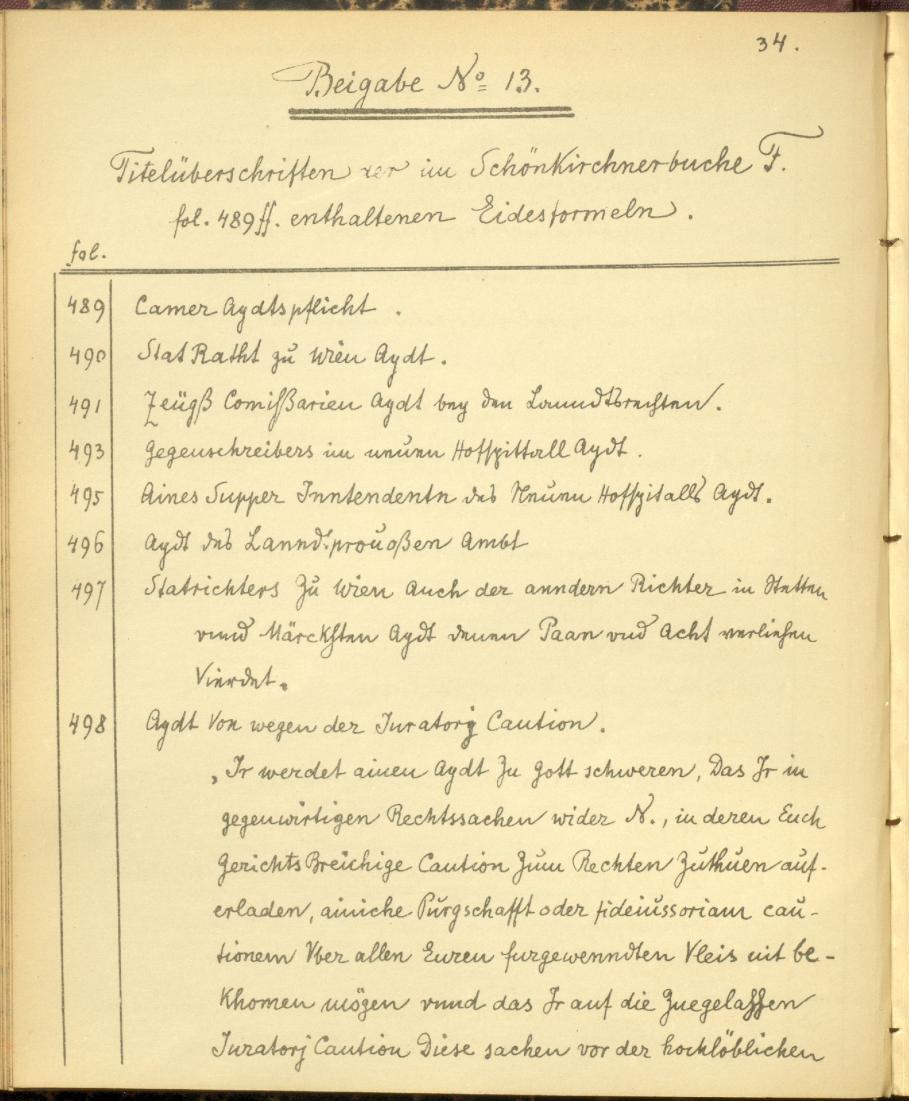 34.
Beigabe No 13.
Titelüberschriften der im Schönkirchnerbuche F.
fol. 489ff. enthaltenen Eidesformeln.
fol.
489 Camer Aydtspflicht.
490 Stat Ratht zu Wien Aydt.
491 Zeügß Comißarien Aydt bey den Lanndtsrechten.
493 Gegenschreibers im neuen Hofspittall Aydt.
495 Aines Supper Inntendentn des Neuen Hofspitalls Aydt.
496 Aydt des Lanndtproußen Ambt
497 Statrichters Zu Wien Auch der anndern Richter in Stetten
vnnd Märckhten Aydt denen Paan vnd Acht verliehen
Vierdet.
498 Aydt Von wegen der Juratorj Caution.
„Ir werdet ainen Aydt Zu Gott schweren, Das Jr in
gegenwirtigen Rechtssachen wider N., in deren Euch
Gerichts Breichige Caution Zum Rechten Zuthuen auf-
erladen, ainiche Pürgschafft oder fideiussoriam cau-
tionem Vber allen Euren furgewenndten Vleis nit be-
khomen mögen vnnd das Jr auf die Zuegelassen
Juratorj Caution Diese sachen vor der hochlöblichen